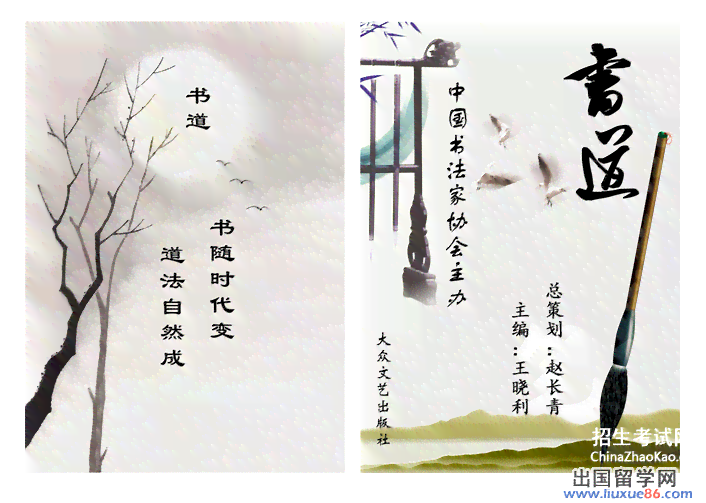 书道
书随时代变
道法自然成
書道
中国书法家协会主办
总策划：赵长青
主编：王晓利
大众文艺出版社
招生考试网
ChinaZhaoKao.c
出国留学网
www.liuxue86.com